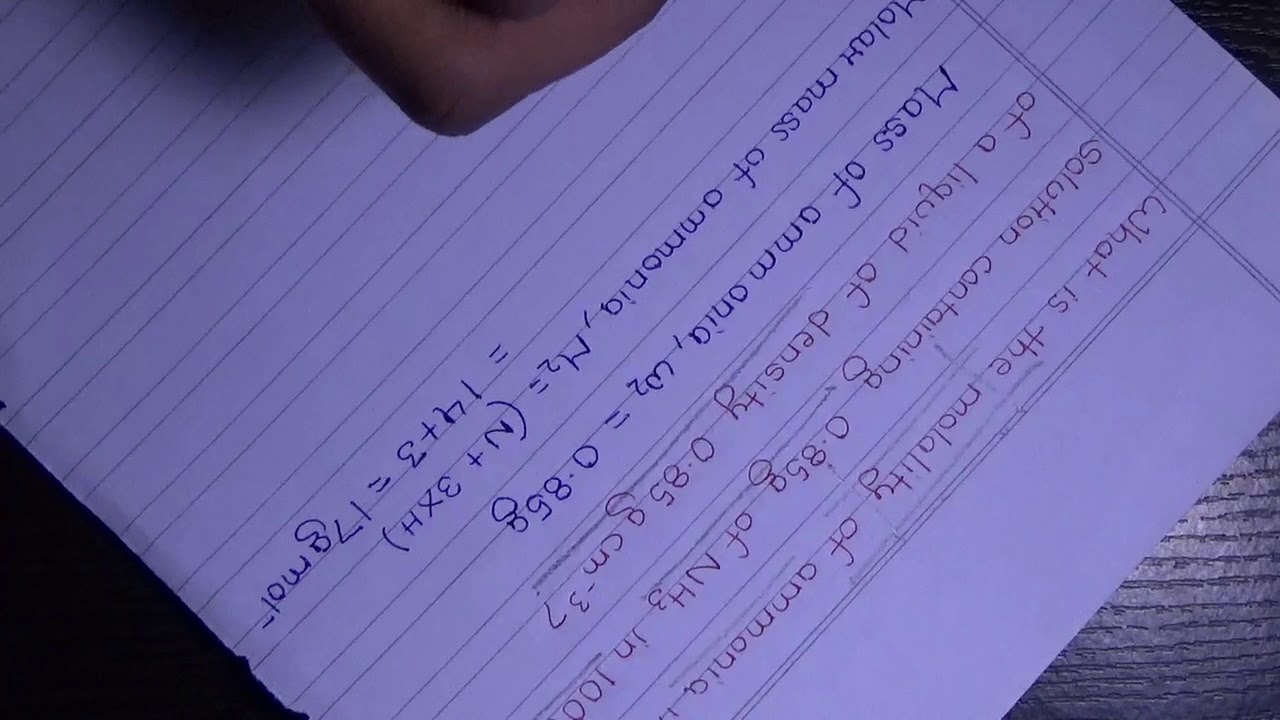 What is the molality of ammonia
solution containing 0.85g of NH3 in 100
of a liquid of density 0.85 g cm-3?
Mass of ammonia, w2 = 0.85g
Molar mass of ammonia, M2 = (N + 3×H)
= 14+3 = 17g mol-